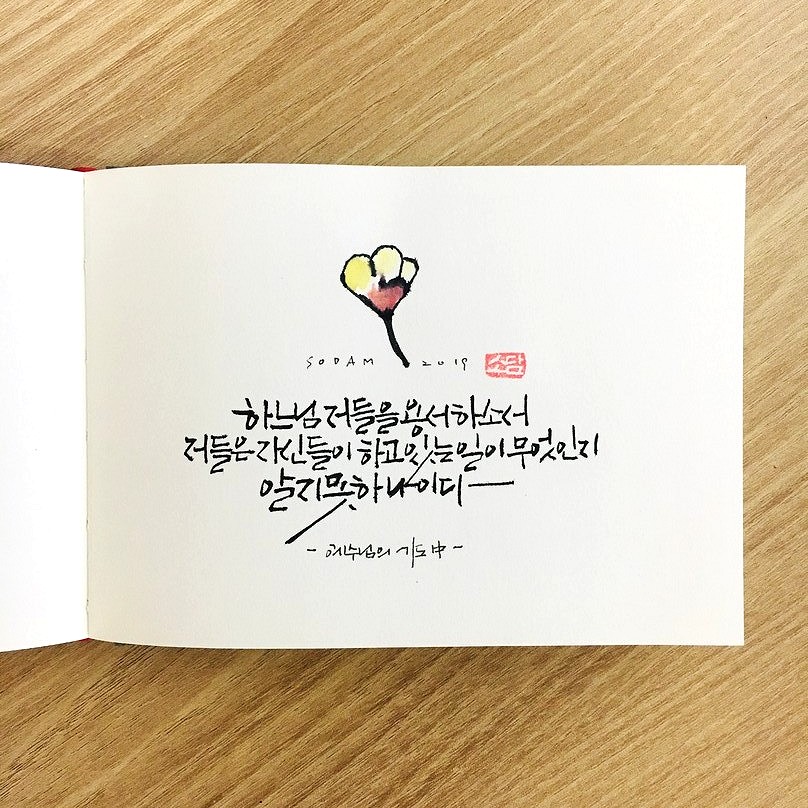 SODAM 2019 소담
하느님 저들을 용서하소서
저들은 자신들이 하고 있는 일이 무엇인지
알지 못하나이다
- 예수님의 기도 中 -